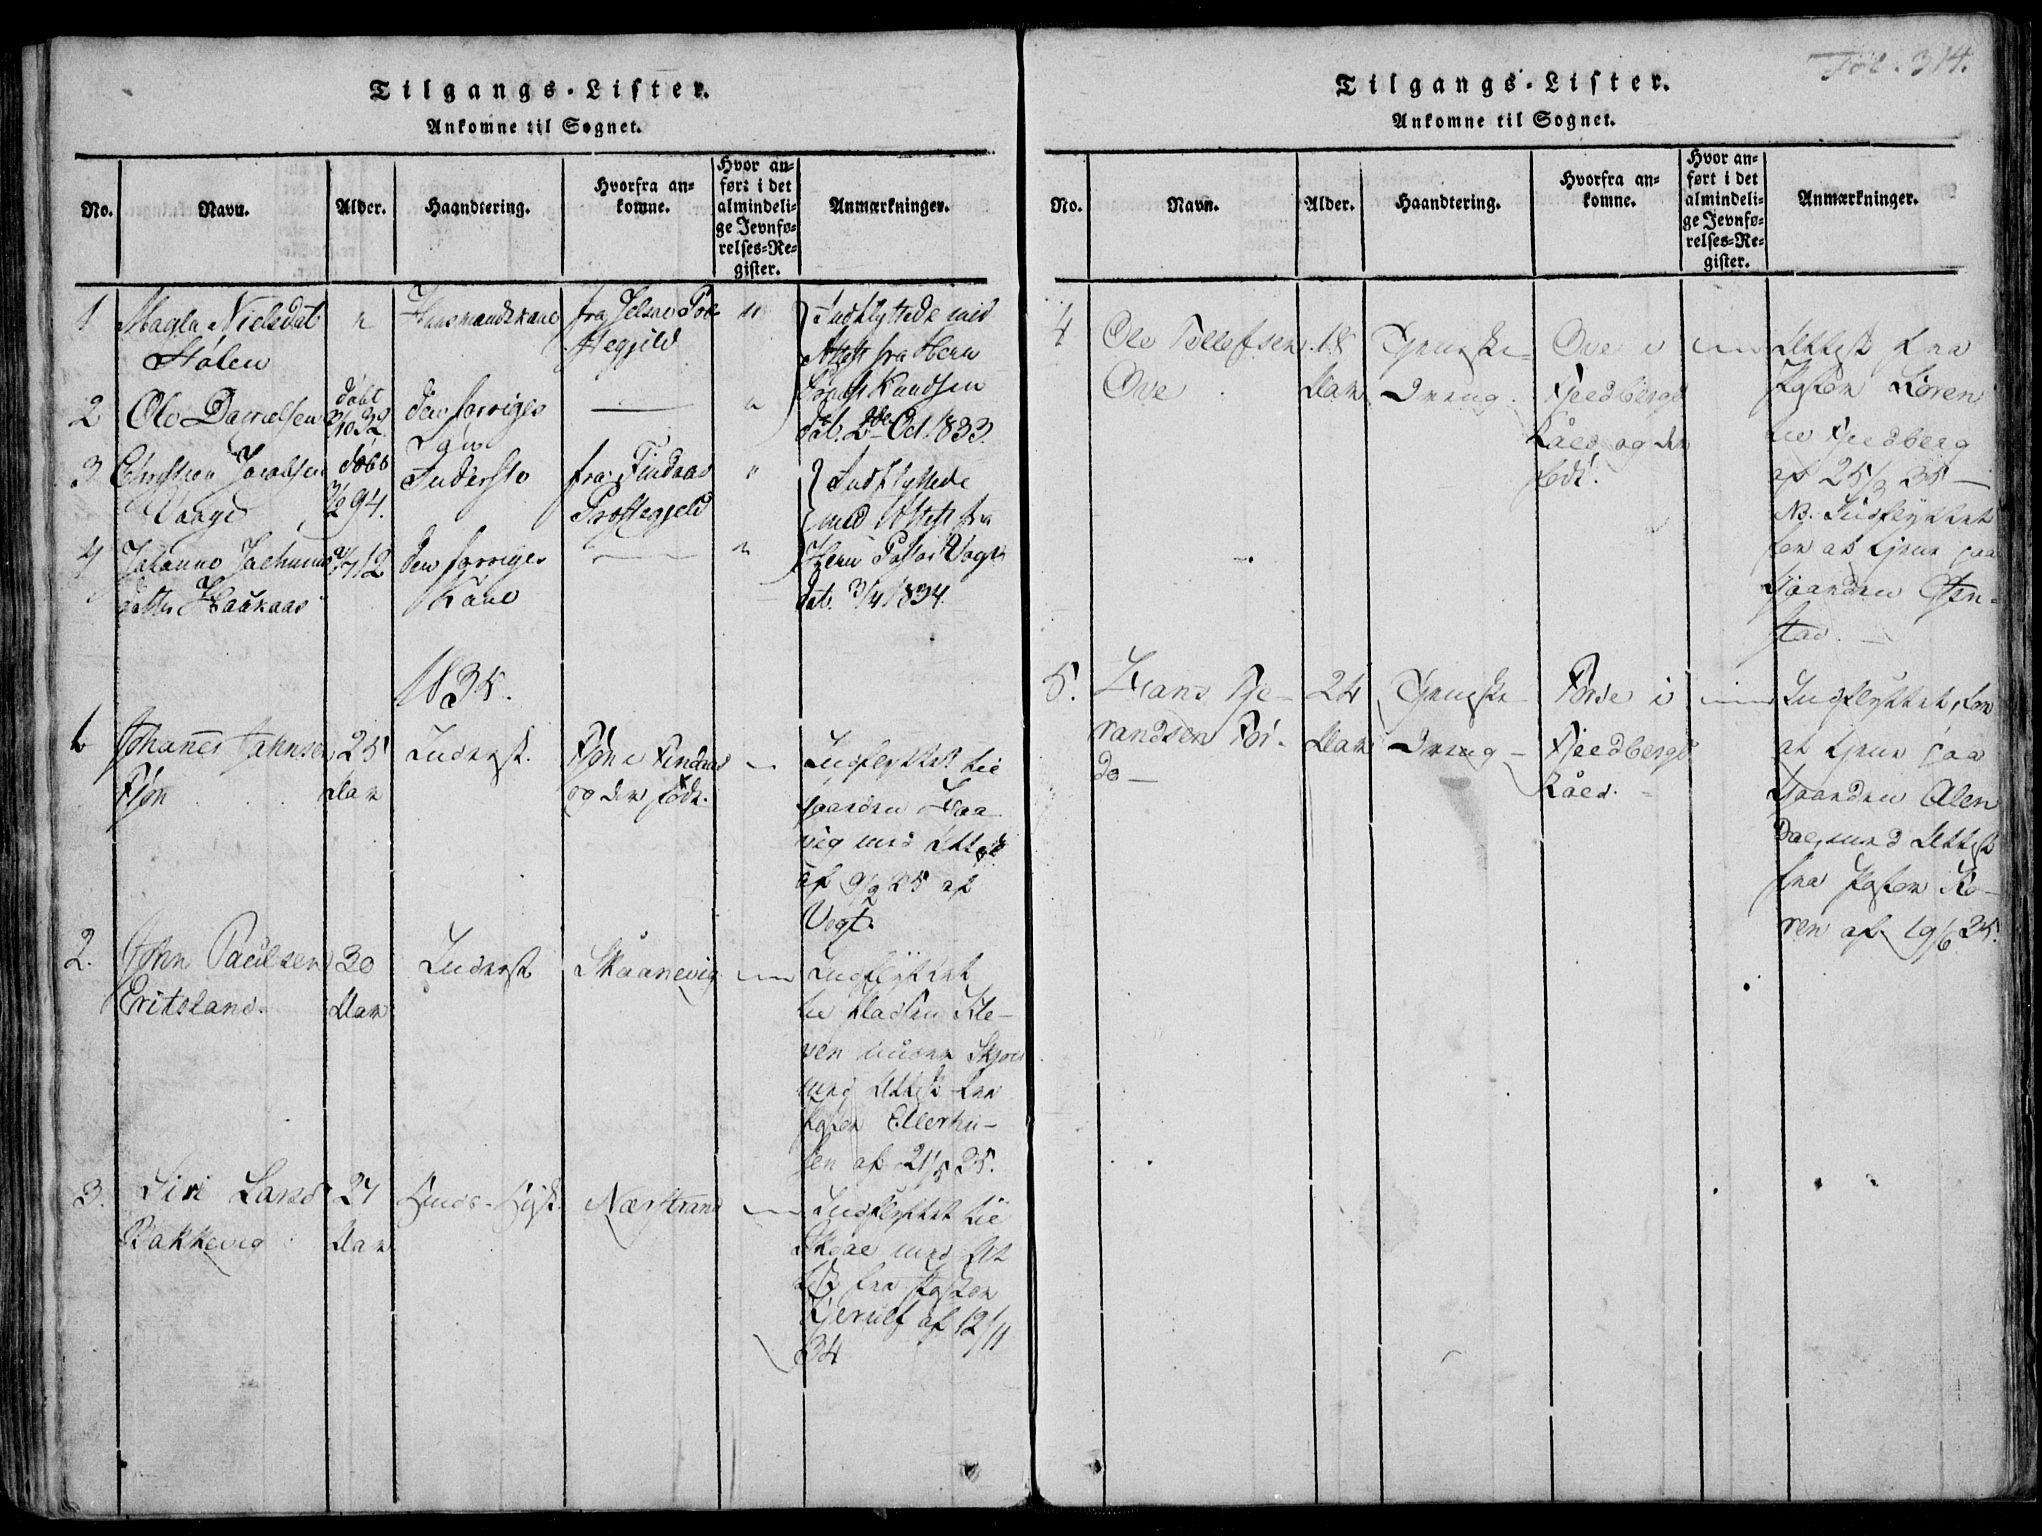 Tilgangs-Lister.
Ankomne til Sognet.
No.
Navn.
Alder.
Haandtering.
Hvorfra an-
komne.
Hvor an-
ført i det
almindeli-
ge Jevnfø-
relses-Re-
gister.
Anmærkninger.
1
Nielsdat
Hølen
"
Huusmandskane
fra Jelsøe
"
Indflyttede med
Attest fra Herr
Knudsen
dat. 2de Oct. 1833.
2
Ole Danielsen
døbt
32
den forriges
"
3
Jacobsen
Vaage
døbt
94.
Inderste
fra Findaas
Præstegjeld
"
Indflyttede
med Attest fra
Herr Pastor Vogt
dat. 3/4 1834.
4
Johanne
datter Haukaas
12
den forriges
Kone
"
1835.
1
Johannes Johnsen
Fjøn
25
Aar
Inderst.
Fjøn i Findaas
og der født.
Indflyttet til
gaarden Vaa
vig med Attest
af 9/2 35 af
Vogt.
2.
John Paulsen
Eritsland
30
Aar
Inderst
Skaanevig
Indflyttet
til Pladsen Kle-
ven under
med Attest fra
Pastor Ellerhu-
sen af 21/5 35.
3.
Siri Larsd
Bakkevig
27
Aar
Nærstrand
Indflyttet til
med At
test fra Pastor
Kjerulf af 12/11
34
Fol. 314.
Tilgangs-Lister.
Ankomne til Sognet.
No.
Navn.
Alder.
Haandtering.
Hvorfra an-
komne.
Hvor an-
ført i det
almindeli-
ge Jevnfø-
relses-Re-
gister.
Anmærkninger.
4
Ole Tollefsen
Ove
18
Aar
Tjeneste-
Dreng.
Ove i
Fjeldbergs
og der
født.
Attest fra
Pastor Koren
til Fjeldberg
af 25/3 35
NB. Indflyttet
for at tjene paa
Gaarden
stad.
5.
Hans Tje-
randsen Før-
de
24
Aar
Tjeneste
Dreng
Førde i
Fjeldbergs
Indflyttet, for
at tjene paa
Gaarden Ølen
med Attest
fra Pastor Ko-
ren af 19/6 35.